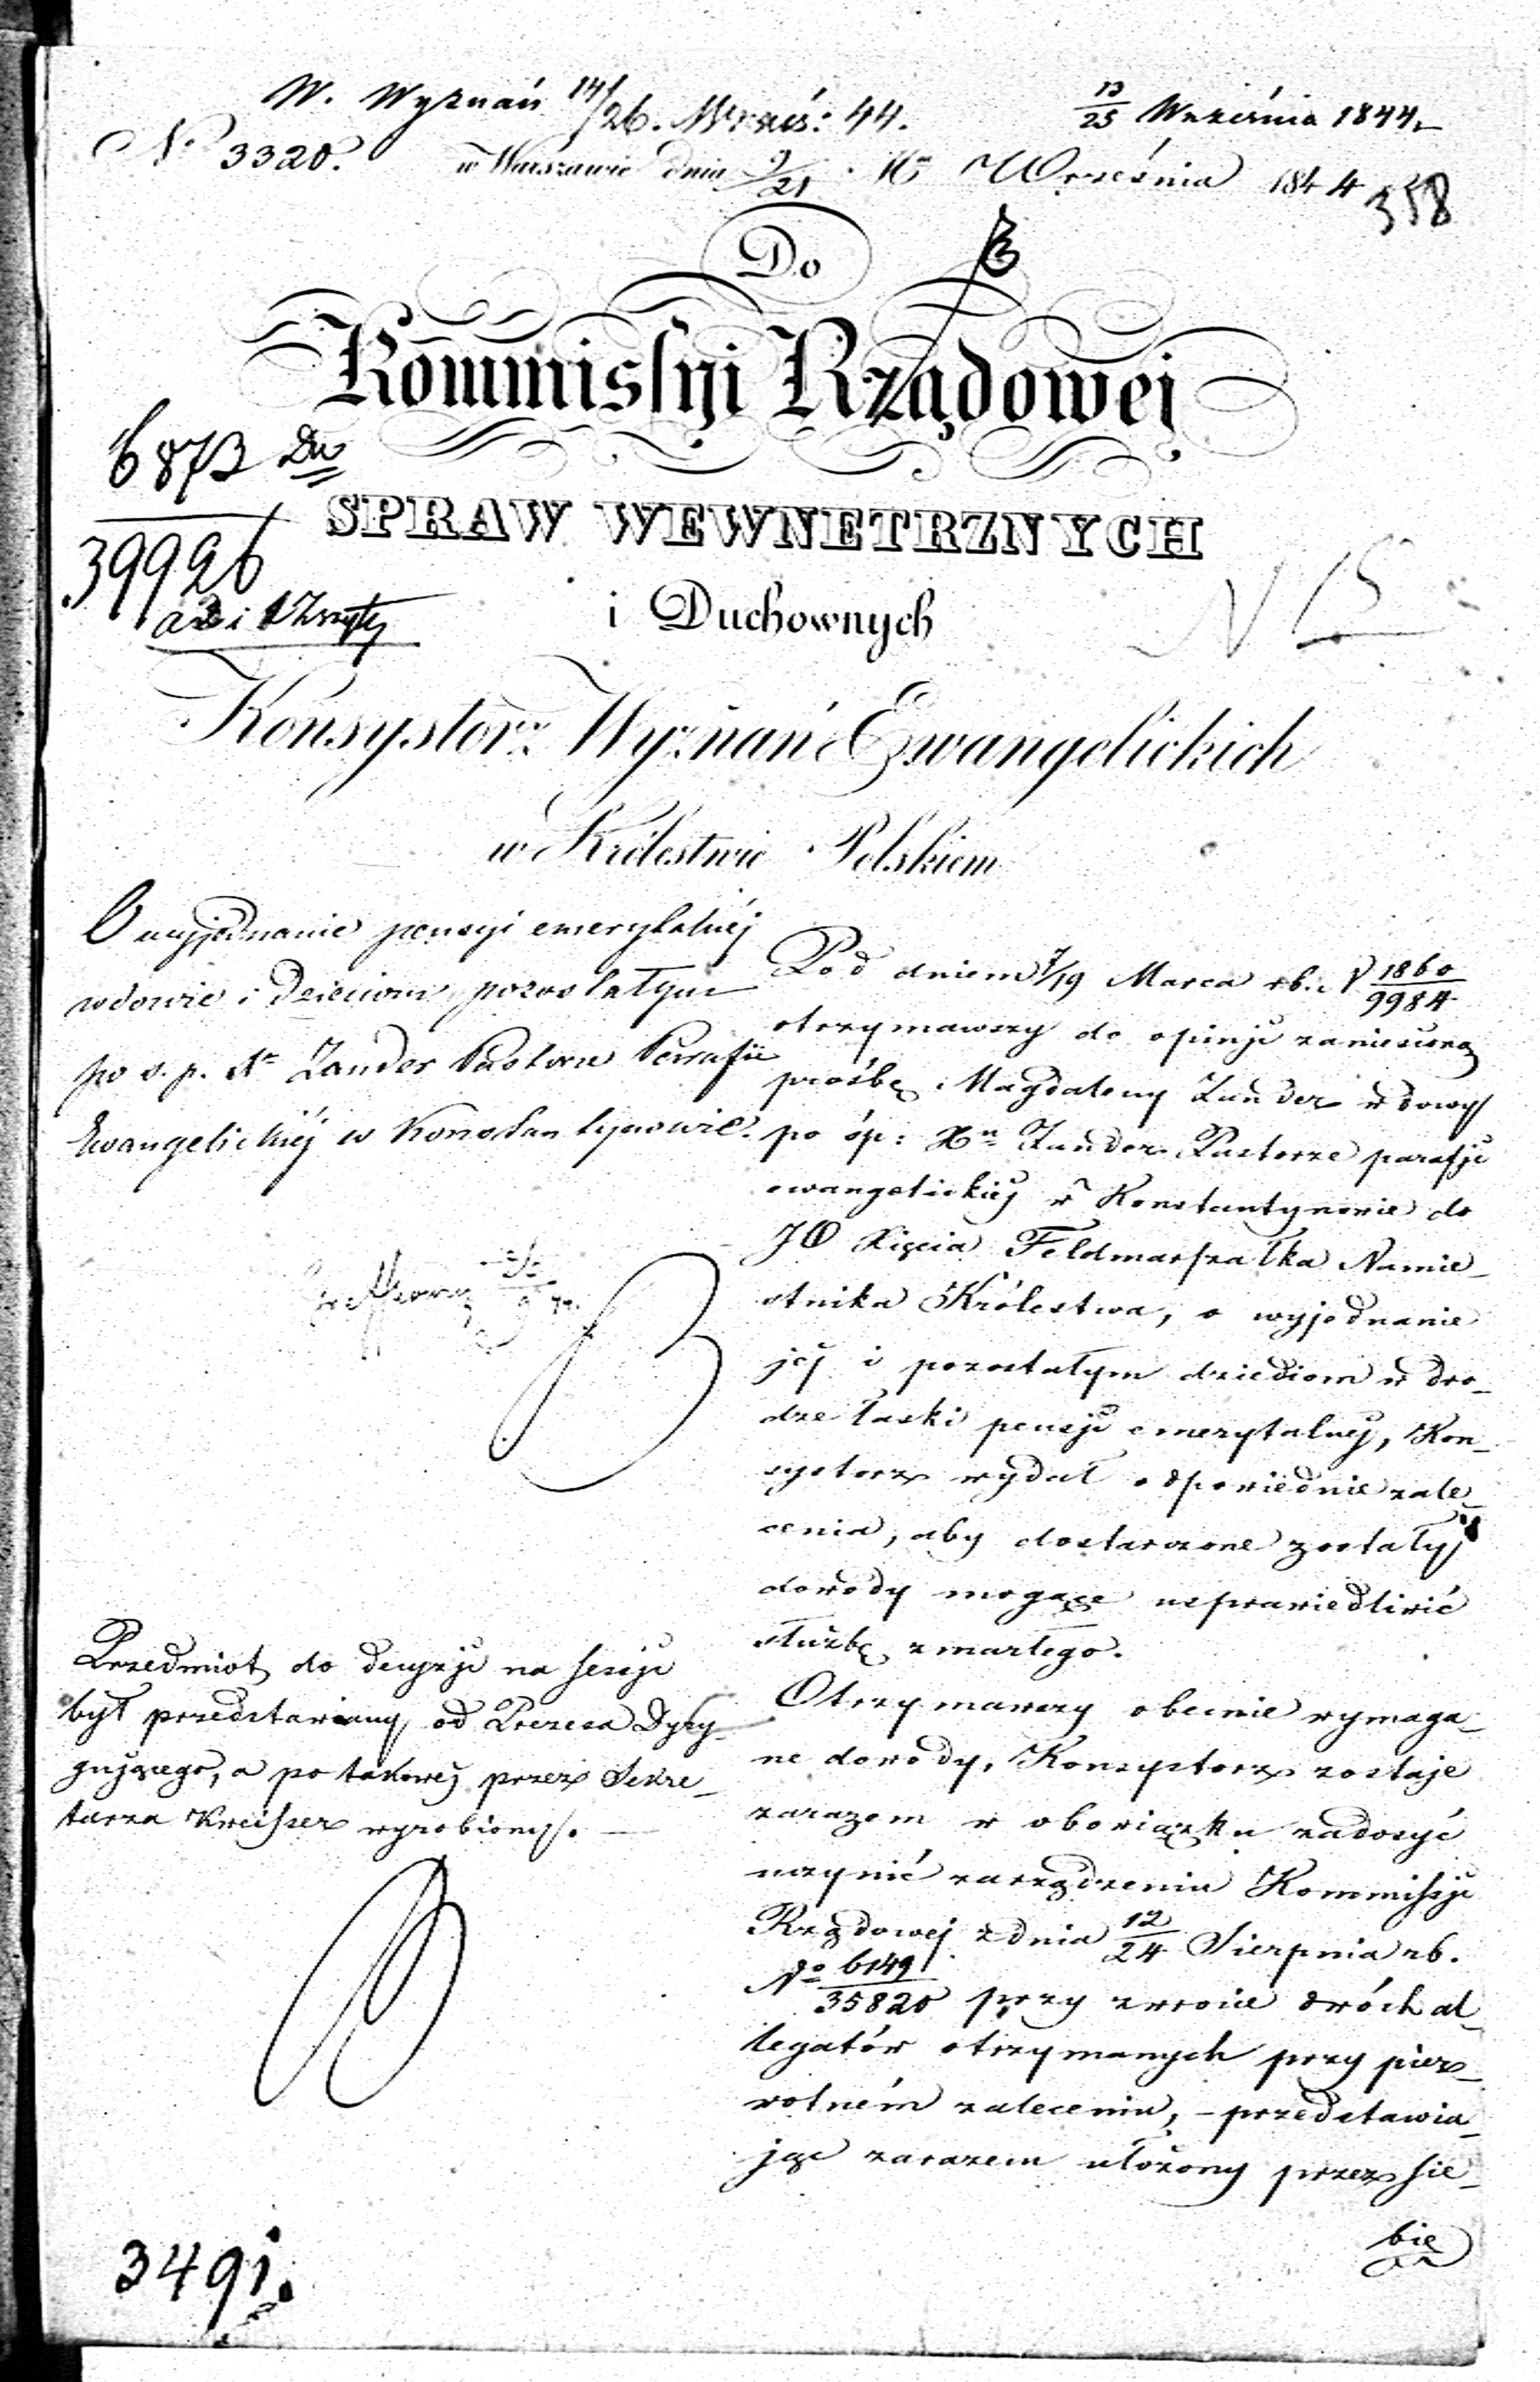 W. Wyznań 14/26. Wrześ: 44.
13/25 Września 1844
N. 3320.
w Warszawie dnia 9/21 Września 1844
358
Do
Kommissyi Rządowej
6873
39926
SPRAW WEWNETRZNYCH
i Duchownych
Konsystorz Wyznań Ewangelickich
w Królestwie Polskiem
O wyjednanie pensyi emerytalnéj
wdowie i dzieciom pozostałym
po ś. p. Xe Zander Pastorze Parafii
Ewangelickiéj w Konstantynowie.
Przedmiot do decyzji na sessji
był przedstawiany od Prezesa Dyry_
gującego, a po takowej przez Sekre_
tarza Kreisser wyrobiony. —
3491.
Pod dniem 7/19 Marca rb. N 1860/9984
otrzymawszy do opinji zaniesioną
prośbę Magdaleny Zander wdowy
po śp: Xu Zander Pastorze parafji
ewangelickiej w Konstantynowie do
JO Xięcia Feldmarszałka Namie_
stnika Królestwa, o wyjednanie
jej i pozostałym dzieciom w dro_
dze łaski pensji emerytalnej, Kon_
systorz wydał odpowiednie zale_
cenia, aby dostarczone zostały
dowody mogące usprawiedliwić
służbę zmarłego.
Otrzymawszy obecnie wymaga_
ne dowody, Konsystorz zostaje
zarazem w obowiązku zadosyć
uczynić zarządzeniu Kommissji
Rządowej z dnia 12/24 Sierpnia rb.
No 6149/35820 przy zwrocie dwóch al_
legatów otrzymanych przy pier_
wotném zaleceniu, – przedstawia_
jąc zarazem ułożony przez sie_
bie